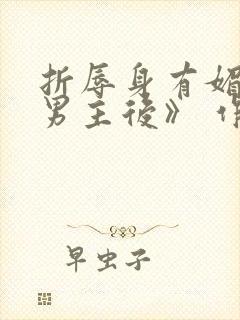 折辱身有媚
男主後》
早虫子